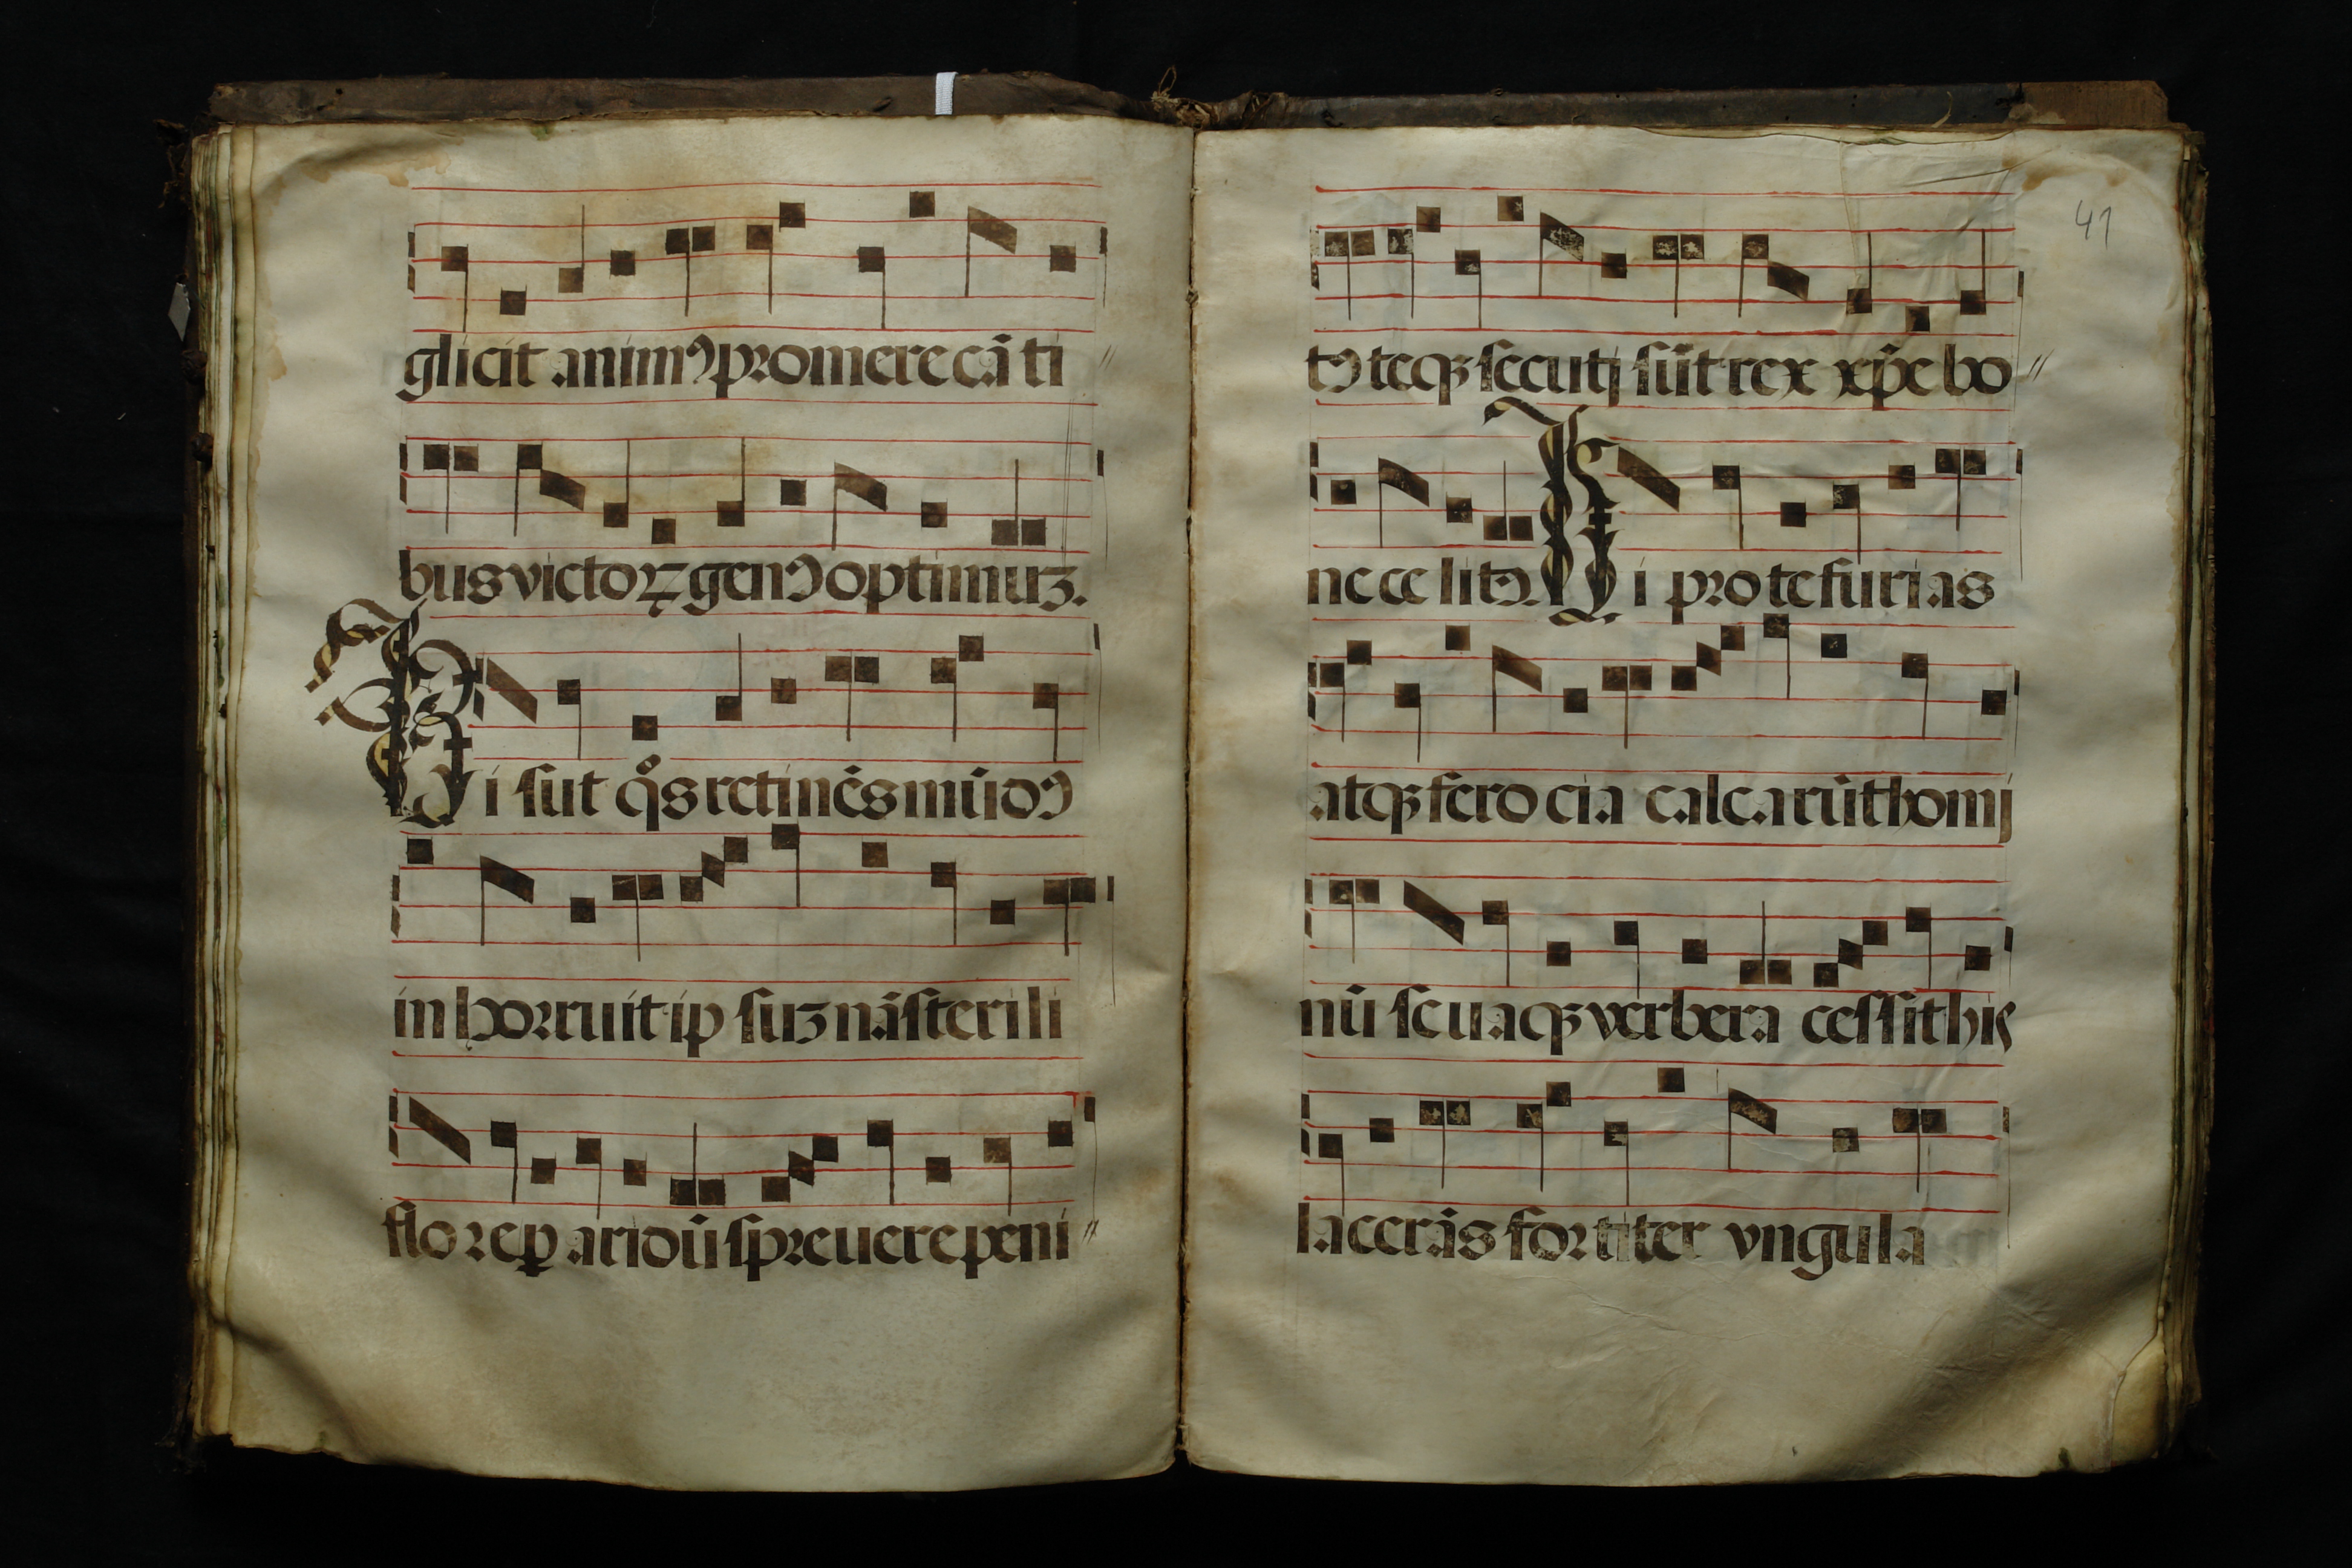 glicit animꝰ promere cāti
bus victoꝝ genꝰ optimuꝫ.
Hi sūt q̊s retinēs mūdꝰ
inhorruit ipsuꝫ nā sterili
flore ꝑaridū spreuere peni
41
tꝰ teqꝫ secuti sūt rex xp̄e bo
ne celitꝰ. Hi pro te furias
atqꝫ ferocia calcarūt homi
nū seuaqꝫ verbera cessit his
lacerās fortiter vngula